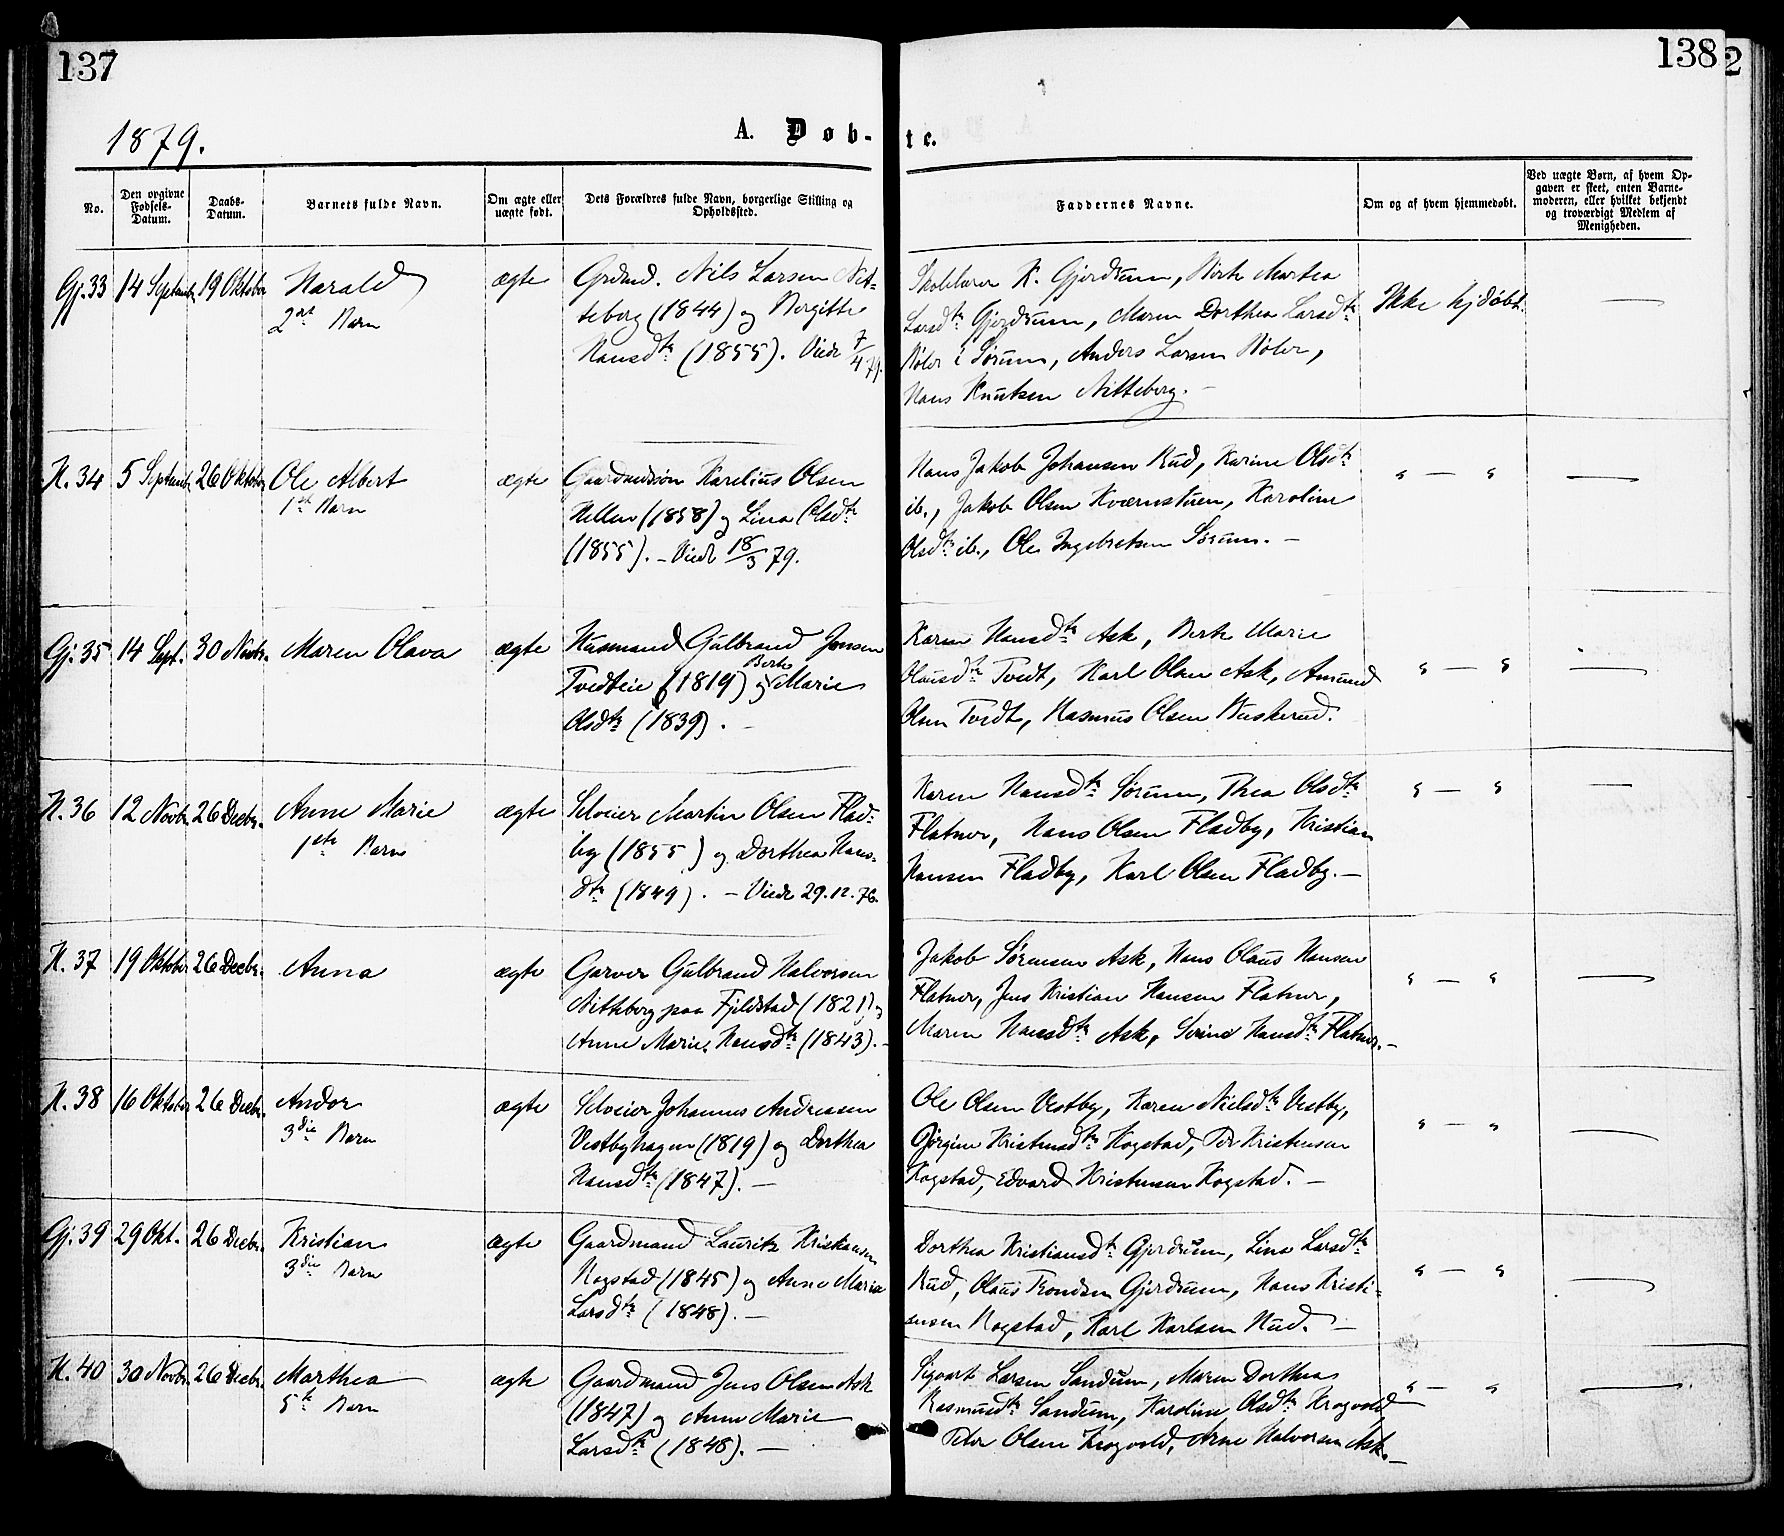 137
138
2
1879.
A. Døb-
te.
No.
Den opgivne Fødsels-Datum.
Daabs-Datum.
Barnets fulde Navn.
Om ægte eller uægte født.
Dets Forældres fulde Navn, borgerlige Stilling og Opholdssted.
Faddernes Navne.
Om og af hvem hjemmedøbt.
Ved uægte Børn, af hvem Op-
gaven er skeet, enten Barne-
moderen, eller hvilket bekjendt
og troværdigt Medlem af
Menigheden.
Gj. 33 14 Septembr 19 Oktober Harald ægte
2det Barn
Grdmd. Nils Larsen Nit-
teberg (1844) og Bergitte
Hansdtr (1855). Viede 7/4 79.
Skolelærer K. Gjerdrum, Birte Martea
Larsdtr Gjerdrum, Maren Dorthea Larsdtr
Böler i Sørum, Anders Larsen Böler,
Hans Knutsen Nitteberg. —
Ikke hjdøbt. —
H. 34 5 Septembr 26 Oktober Ole Albert ægte
1ste Barn
Gaardmdsøn Karelius Olsen
Hellen (1858) og Lina Olsdtr
(1855). — Viede 18/3 79.
Hans Jakob Johansen Rud, Karine Olsdtr
ib., Jakob Olsen Kværnstuen, Karoline
Olsdtr ib., Ole Ingebretsen Sørum. —
" — " —
Gj. 35 14 Sept. 30 Novbr. Maren Olava ægte
Husmand Gulbrand Jensen
Tvedteie (1819) og Berte Marie
Olsdtr (1839). —
Karen Hansdtr Ask, Berte Marie
Olausdtr Tvedt, Karl Olsen Ask, Amund
Olsen Tvedt, Rasmus Olsen Buskerud.
" — " —
H. 36 12 Novbr. 26 Decbr. Anne Marie ægte
1ste Barn
Selveier Martin Olsen Flad-
by (1855) og Dorthea Hans-
dtr (1849). — Viede 29.12.76.
Karen Hansdtr Sørum, Thea Olsdtr
Flatner, Hans Olsen Fladby, Kristian
Hansen Fladby, Karl Olsen Fladby. —
" — " —
H. 37 19 Oktober 26 Decbr. Anna ægte
Garver Gulbrand Halvorsen
Nitteberg paa Fjeldstad (1821) og
Anne Marie Hansdtr (1843). —
Jakob Sörensen Ask, Hans Olaus Hansen
Flatner, Jens Kristian Hansen Flatner,
Maren Hansdtr Ask, Severine Hansdtr Flatner. —
" — " —
H. 38 16 Oktober 26 Decbr. Andor ægte
3die Barn
Selveier Johannes Andreasen
Vestbyhagen (1819) og Dorthea
Hansdtr (1847). —
Ole Olsen Vestby, Karen Nielsdtr Vestby,
Gørgine Kristensdtr Kogstad, Per Kristensen
Kogstad, Edvard Kristensen Kogstad. —
" — " —
Gj. 39 29 Okt. 26 Decbr. Kristian ægte
3die Barn
Gaardmand Lauritz Kristiansen
Rogstad (1845) og Anne Marie
Larsdtr (1848). —
Dorthea Kristiansdtr Gjerdrum, Lina Larsdtr
Rud, Olaus Trondsen Gjerdrum, Hans Kristi-
ansen Rogstad, Karl Karlsen Rud. —
" — " —
H. 40 30 Novbr. 26 Decbr. Marthea ægte
5te Barn
Gaardmand Jens Olsen Ask
(1847) og Anne Marie
Larsdtr (1848). —
Sigvart Larsen Sandum, Maren Dorthea
Rasmusdtr Sandum, Karoline Olsdtr Krogvold,
Peter Olsen Krogvold, Arne Halvorsen Ask. —
" — " —